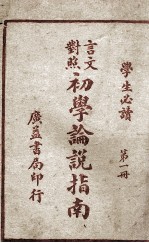 學生必讀
第一册
言文對照
初學論說指南
廣益書局印行